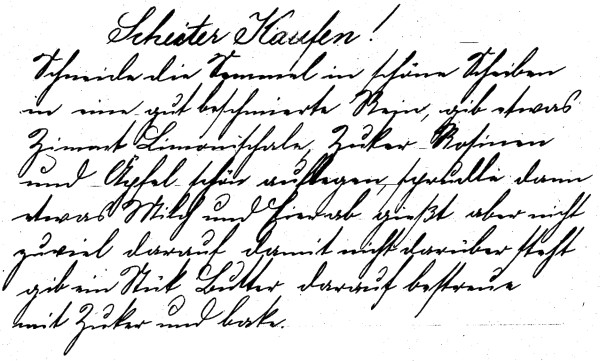 Scheiter Haufen!
Schneide die Semmel in schöne Scheiben
in eine gut beschmierte Rein, gib etwas
Zimmet Limonischale, Zuker Rosinen
und Äpfel schön auflegen, sprudle dann
etwas Milch und Eier ab gießt aber nicht
zuviel darauf damit nicht darüber steht
gib ein Stük Butter darauf bestreue
mit Zuker und bake.